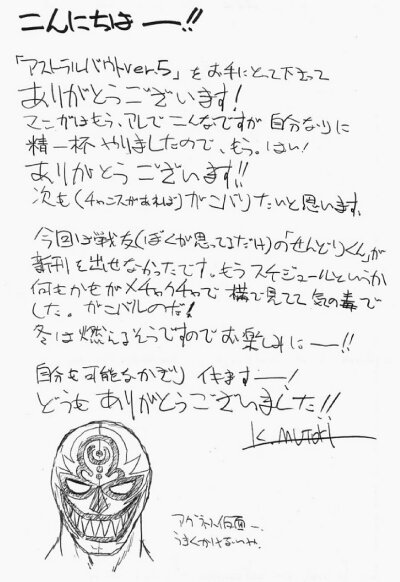 こんにちは ー!!
「アストラルバウトver.5」を お手にとって下さって
ありがとうございます!
マンガはもう、アレで こんなですが 自分なりに
精一杯 やりましたので、もう。はい!
ありがとうございます!!
次も(チャンスがあれば)ガンバりたいと思います。
今回は戦友(ぼくが思ってるだけ)の「せんどりくん」が
新刊を出せなかったです。もう スケジュールというか
何もかもがメチャクチャで 横で見てて 気の毒で
した。ガンバルのだ!
冬は燃えるそうですので お楽しみに ー!!
自分も可能なかぎり イキますー!
どうも ありがとうございました!!
K. MUTOH
アグネス仮面ー。
うまくかけないや。